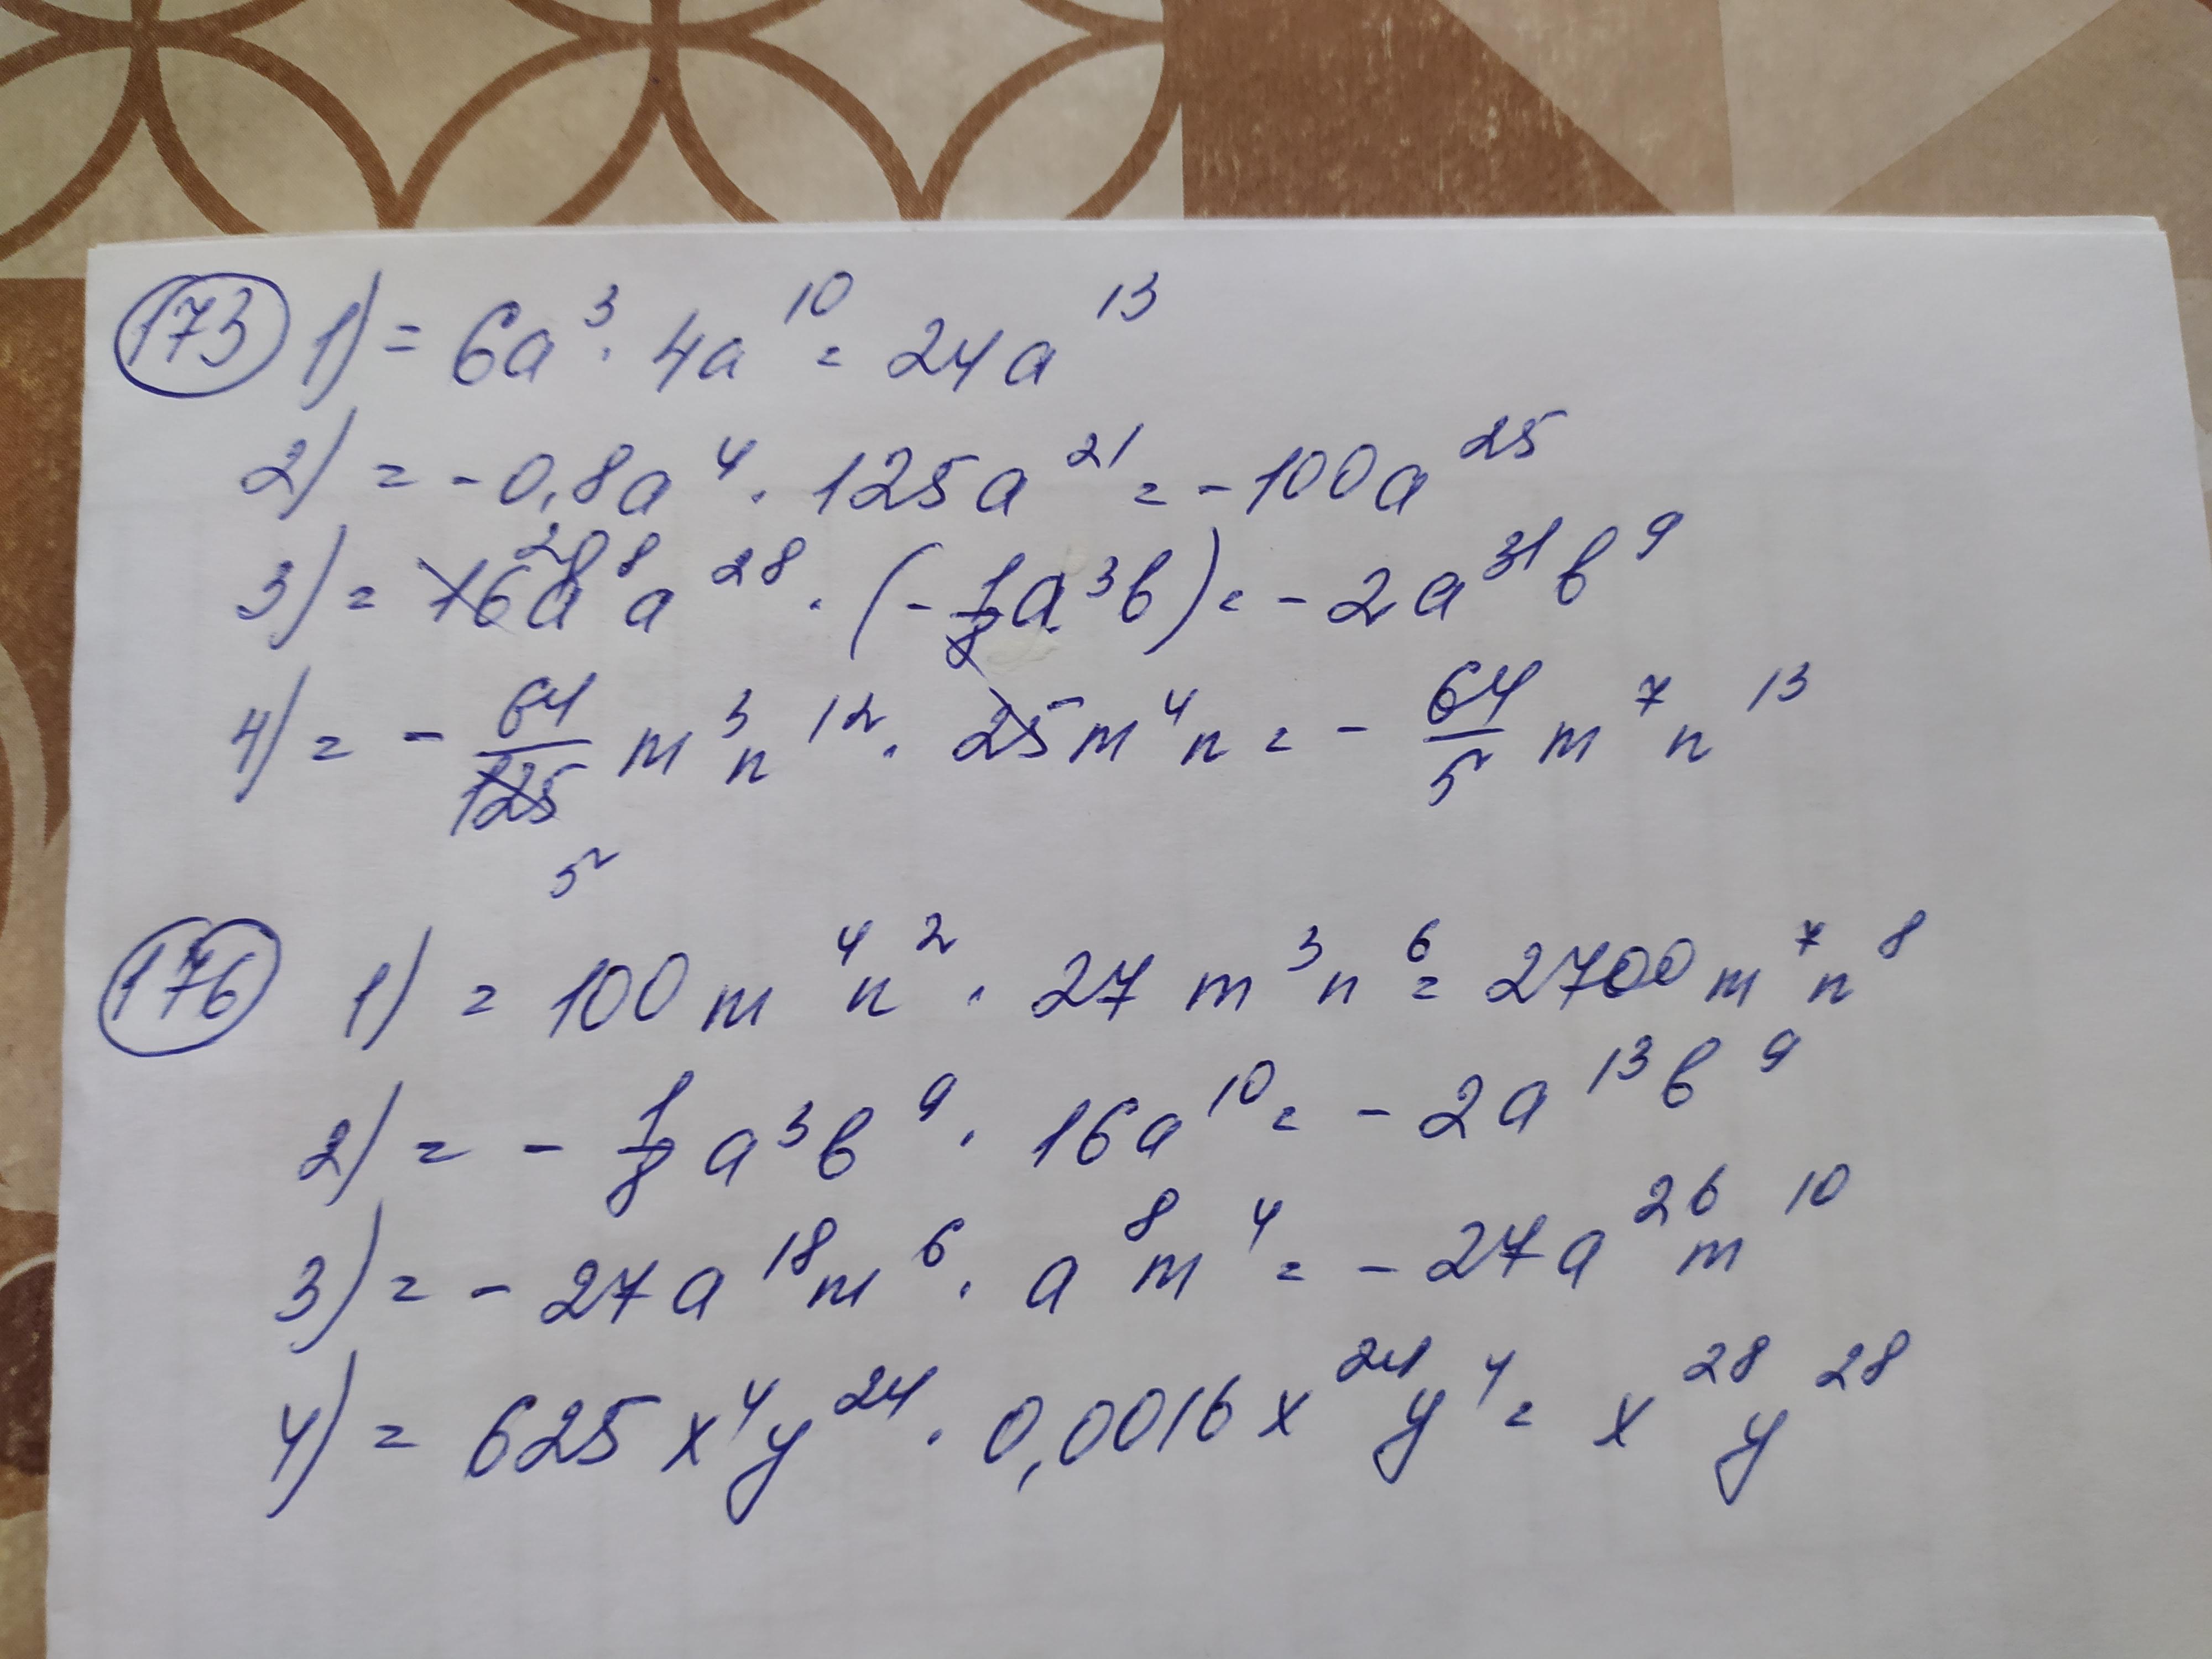 173 1) = 6a³ · 4a¹⁰ = 24a¹³
2) = - 0,8a⁴ · 125a²¹ = - 100a²⁵
3) = 16a²⁸ ⁸a²⁸ · (- 1/8 a³b) = - 2a³¹b⁹
4) = - 64/125 m³n¹² · 25m⁴n = - 64/5 m⁷n¹³
5
176 1) = 100m⁴n² · 27m³n⁶ = 2700m⁷n⁸
2) = - 1/8 a³b⁹ · 16a¹⁰ = - 2a¹³b⁹
3) = - 27a¹⁸m⁶ · a⁸m⁴ = - 27a²⁶m¹⁰
4) = 625x⁴y²⁴ · 0,0016x²⁴y⁴ = x²⁸y²⁸